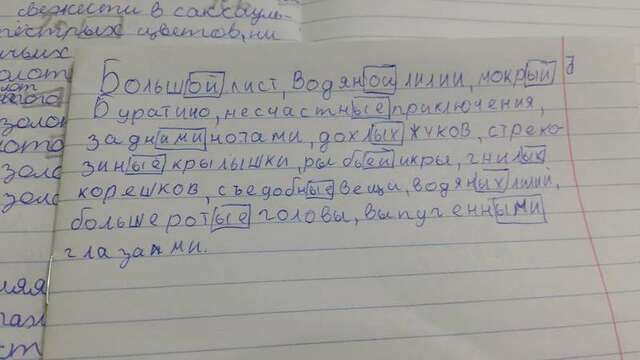 пестрых цветов, ни
Большой лист, водяной лилии, мокрый
Буратино, несчастные приключения,
задними ногами, дохлых жуков, стреко-
зиные крылышки, рыбьей икры, гнилых
корешков, съедобные вещи, водяных лилии,
большеротые головы, выпученными
глазами.